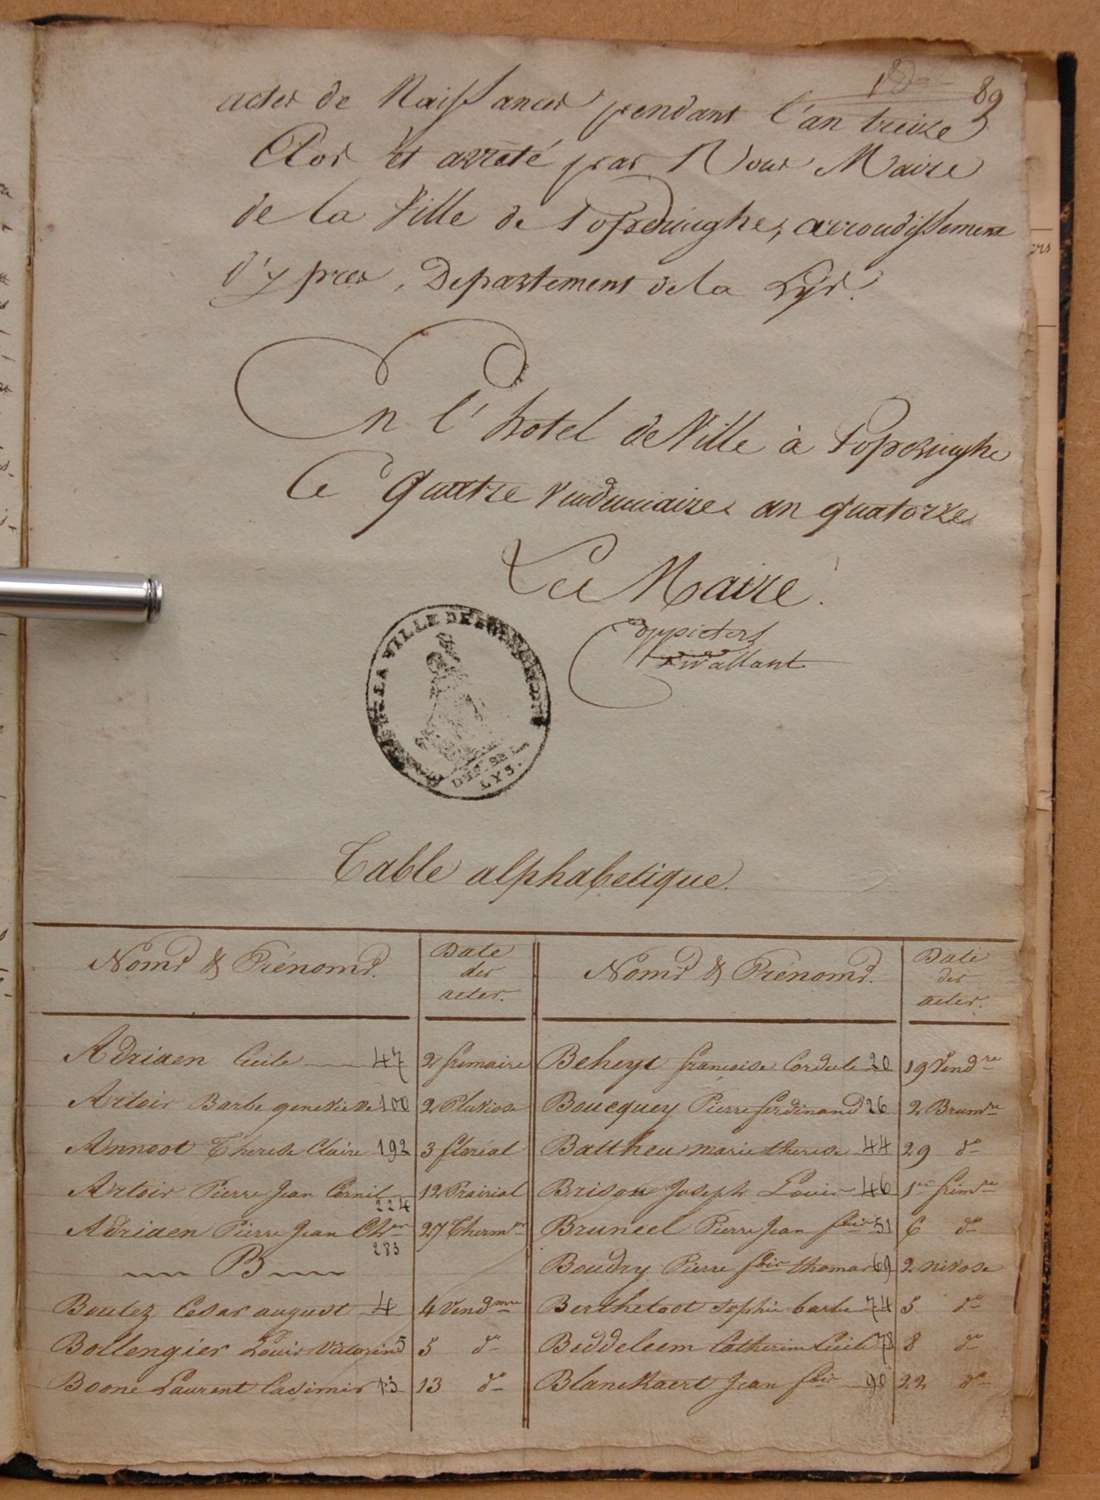 89
actes de Naissances pendant l'an treize
Clos et arreté par Nous Maire
de la Ville de Poperinghe, arrondissement
d'ypres, Departement de la Lys.
En l'hotel de Ville à Poperinghe
Ce quatre vendemiaire an quatorze
Le Maire
LA VILLE DE
LYS.
Table alphabetique.
Noms & Prénoms. Date des actes. Noms & Prénoms. Date des actes.
Adriaen Cecile 47 2 frimaire Beheyt françoise Cordule 20 19 Vendre
Artois Barbe genevieve 100 2 Pluviose Boucquey Pierre ferdinand 26 2 Brumre
Annoot Therese Claire 192 3 floréal Battheu marie therese 44 29 do
Artois Pierre Jean Cornil 224 12 Prairial Brison Joseph Louis 46 1er frimre
Adriaen Pierre Jean Chen 283 27 Thermor Bruneel Pierre Jean fois 51 6 do
B Boudry Pierre fois thomas 69 2 nivose
Boutez Cesar august 4 4 Vendmre Bertheloot Sophie barbe 74 5 do
Bollengier Louis Victorin 5 5 do Beddeleem Catherine Cecile 78 8 do
Boone Laurent Casimir 13 13 do Blanckaert Jean fois 90 22 do